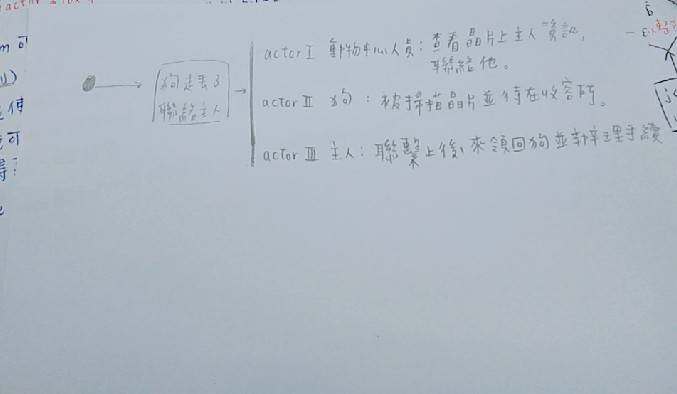 actor
m 可
狗走丟了
聯絡主人
actor I 動物中心人員：查看晶片上主人資訊，
聯絡他。
actor II 狗：被掃描晶片並待在收容所。
actor III 主人：聯繫上後，來領回狗並辦理手續
使
可